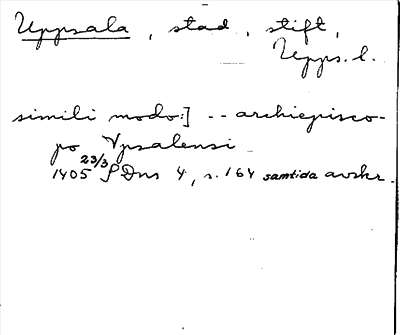 Uppsala, stad, stift,
Upps. l.
simili modo:] -- archiepisco-
po Vpsalensi
1405 23/3 SDns 4, s. 164 samtida avskr.